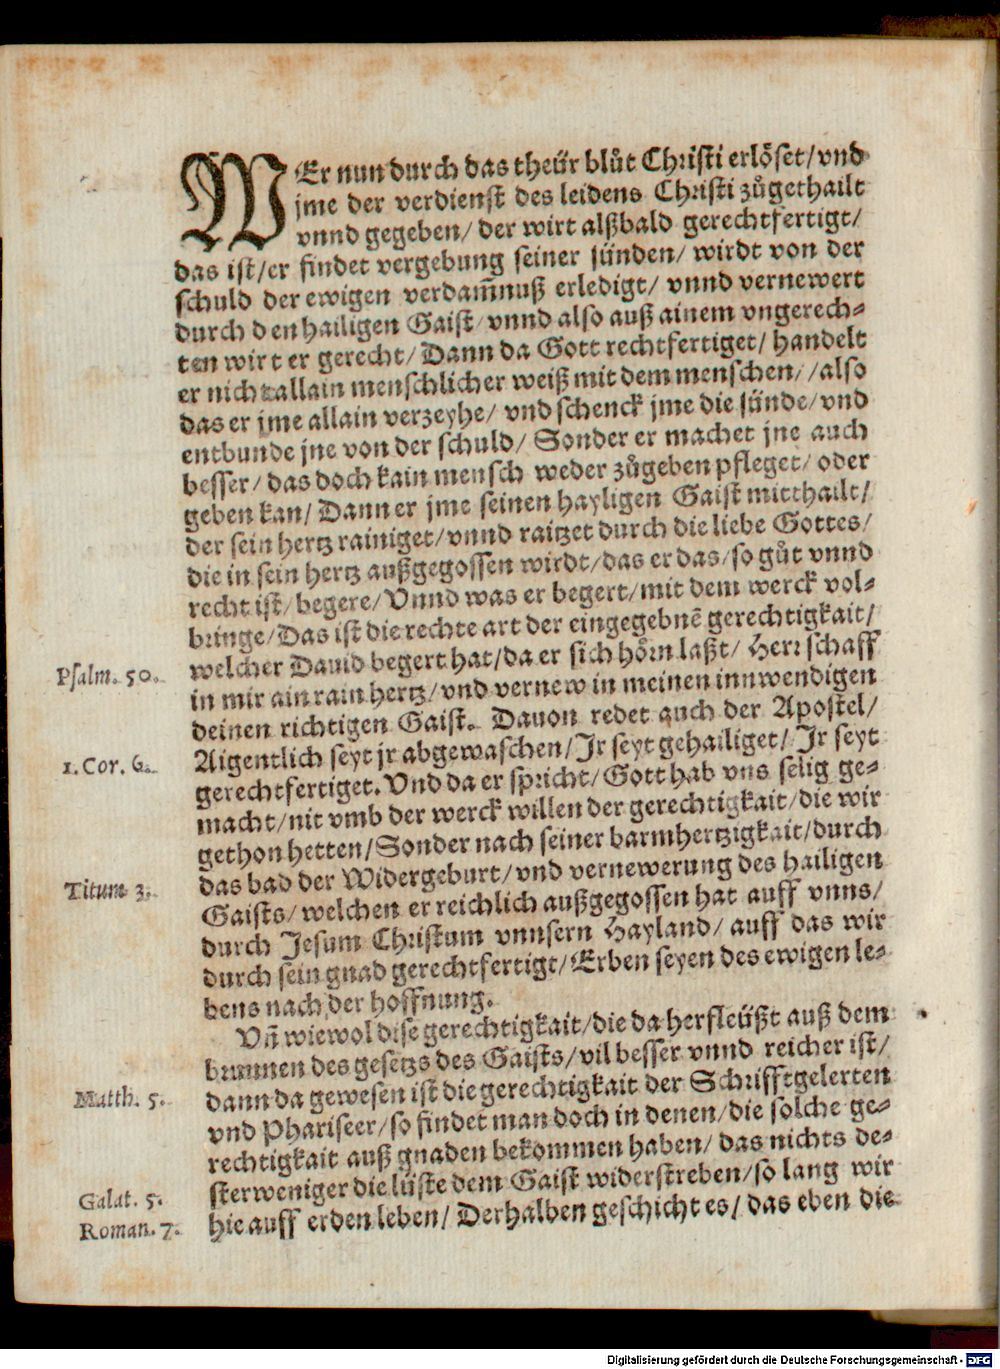 WEr nun durch das theür blůt Christi erlöset/ vnd
jme der verdienst des leidens Christi zůgethailt
vnnd gegeben/ der wirt alßbald gerechtfertigt/
das ist/ er findet vergebung seiner sünden/ wirdt von der
schuld der ewigen verdam̃nuß erledigt/ vnnd vernewert
durch den hailigen Gaist/ vnnd also auß ainem vngerech-
ten wirt er gerecht/ Dann da Gott rechtfertiget/ handelt
er nicht allain menschlicher weiß mit dem menschen/ /also
das er jme allain verzeyhe/ vnd schenck jme die sünde/ vnd
entbunde jne von der schuld/ Sonder er machet jne auch
besser/ das doch kain mensch weder zůgeben pfleget/ oder
geben kan/ Dann er jme seinen hayligen Gaist mitthailt/
der sein hertz rainiget/ vnnd raitzet durch die liebe Gottes/
die in sein hertz außgegossen wirdt/ das er das/ so gůt vnnd
recht ist/ begere/ Vnnd was er begert/ mit dem werck vol-
bringe/ Das ist die rechte art der eingegebnẽ gerechtigkait/
Psalm. 50. welcher Dauid begert hat/ da er sich hörn laßt/ Herr schaff
in mir ain rain hertz/ vnd vernew in meinen innwendigen
deinen richtigen Gaist. Dauon redet auch der Apostel/
1. Cor. 6. Aigentlich seyt jr abgewaschen/ Jr seyt gehailiget/ Jr seyt
gerechtfertiget. Vnd da er spricht/ Gott hab vns selig ge-
macht/ nit vmb der werck willen der gerechtigkait/ die wir
gethon hetten/ Sonder nach seiner barmhertzigkait/ durch
Titum 3. das bad der Widergeburt/ vnd vernewerung des hailigen
Gaists/ welchen er reichlich außgegossen hat auff vnns/
durch Jesum Christum vnnsern Hayland/ auff das wir
durch sein gnad gerechtfertigt/ Erben seyen des ewigen le-
bens nach der hoffnung.
Vñ wiewol dise gerechtigkait/ die da herfleüßt auß dem
brunnen des gesetzs des Gaists/ vil besser vnnd reicher ist/
Matth. 5. dann da gewesen ist die gerechtigkait der Schrifftgelerten
vnd Phariseer/ so findet man doch in denen/ die solche ge-
rechtigkait auß gnaden bekommen haben/ das nichts de-
Galat. 5. sterweniger die lüste dem Gaist widerstreben/ so lang wir
Roman. 7. hie auff erden leben/ Derhalben geschicht es/ das eben die
Digitalisierung gefördert durch die Deutsche Forschungsgemeinschaft - DFG